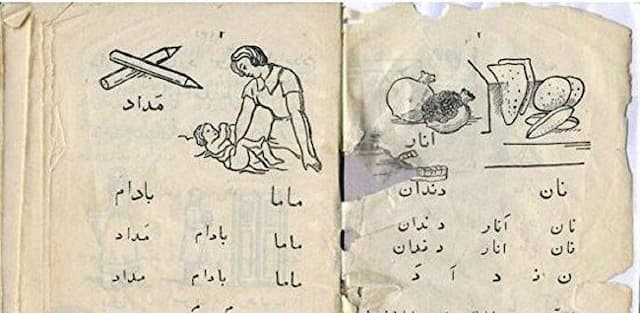 اَنار
نان دندان
نان اَنار دندان
نان انار دندان
ن د اَ دَ
مَداد
ماما بادام
ماما بادام مَداد
ماما بادام مداد